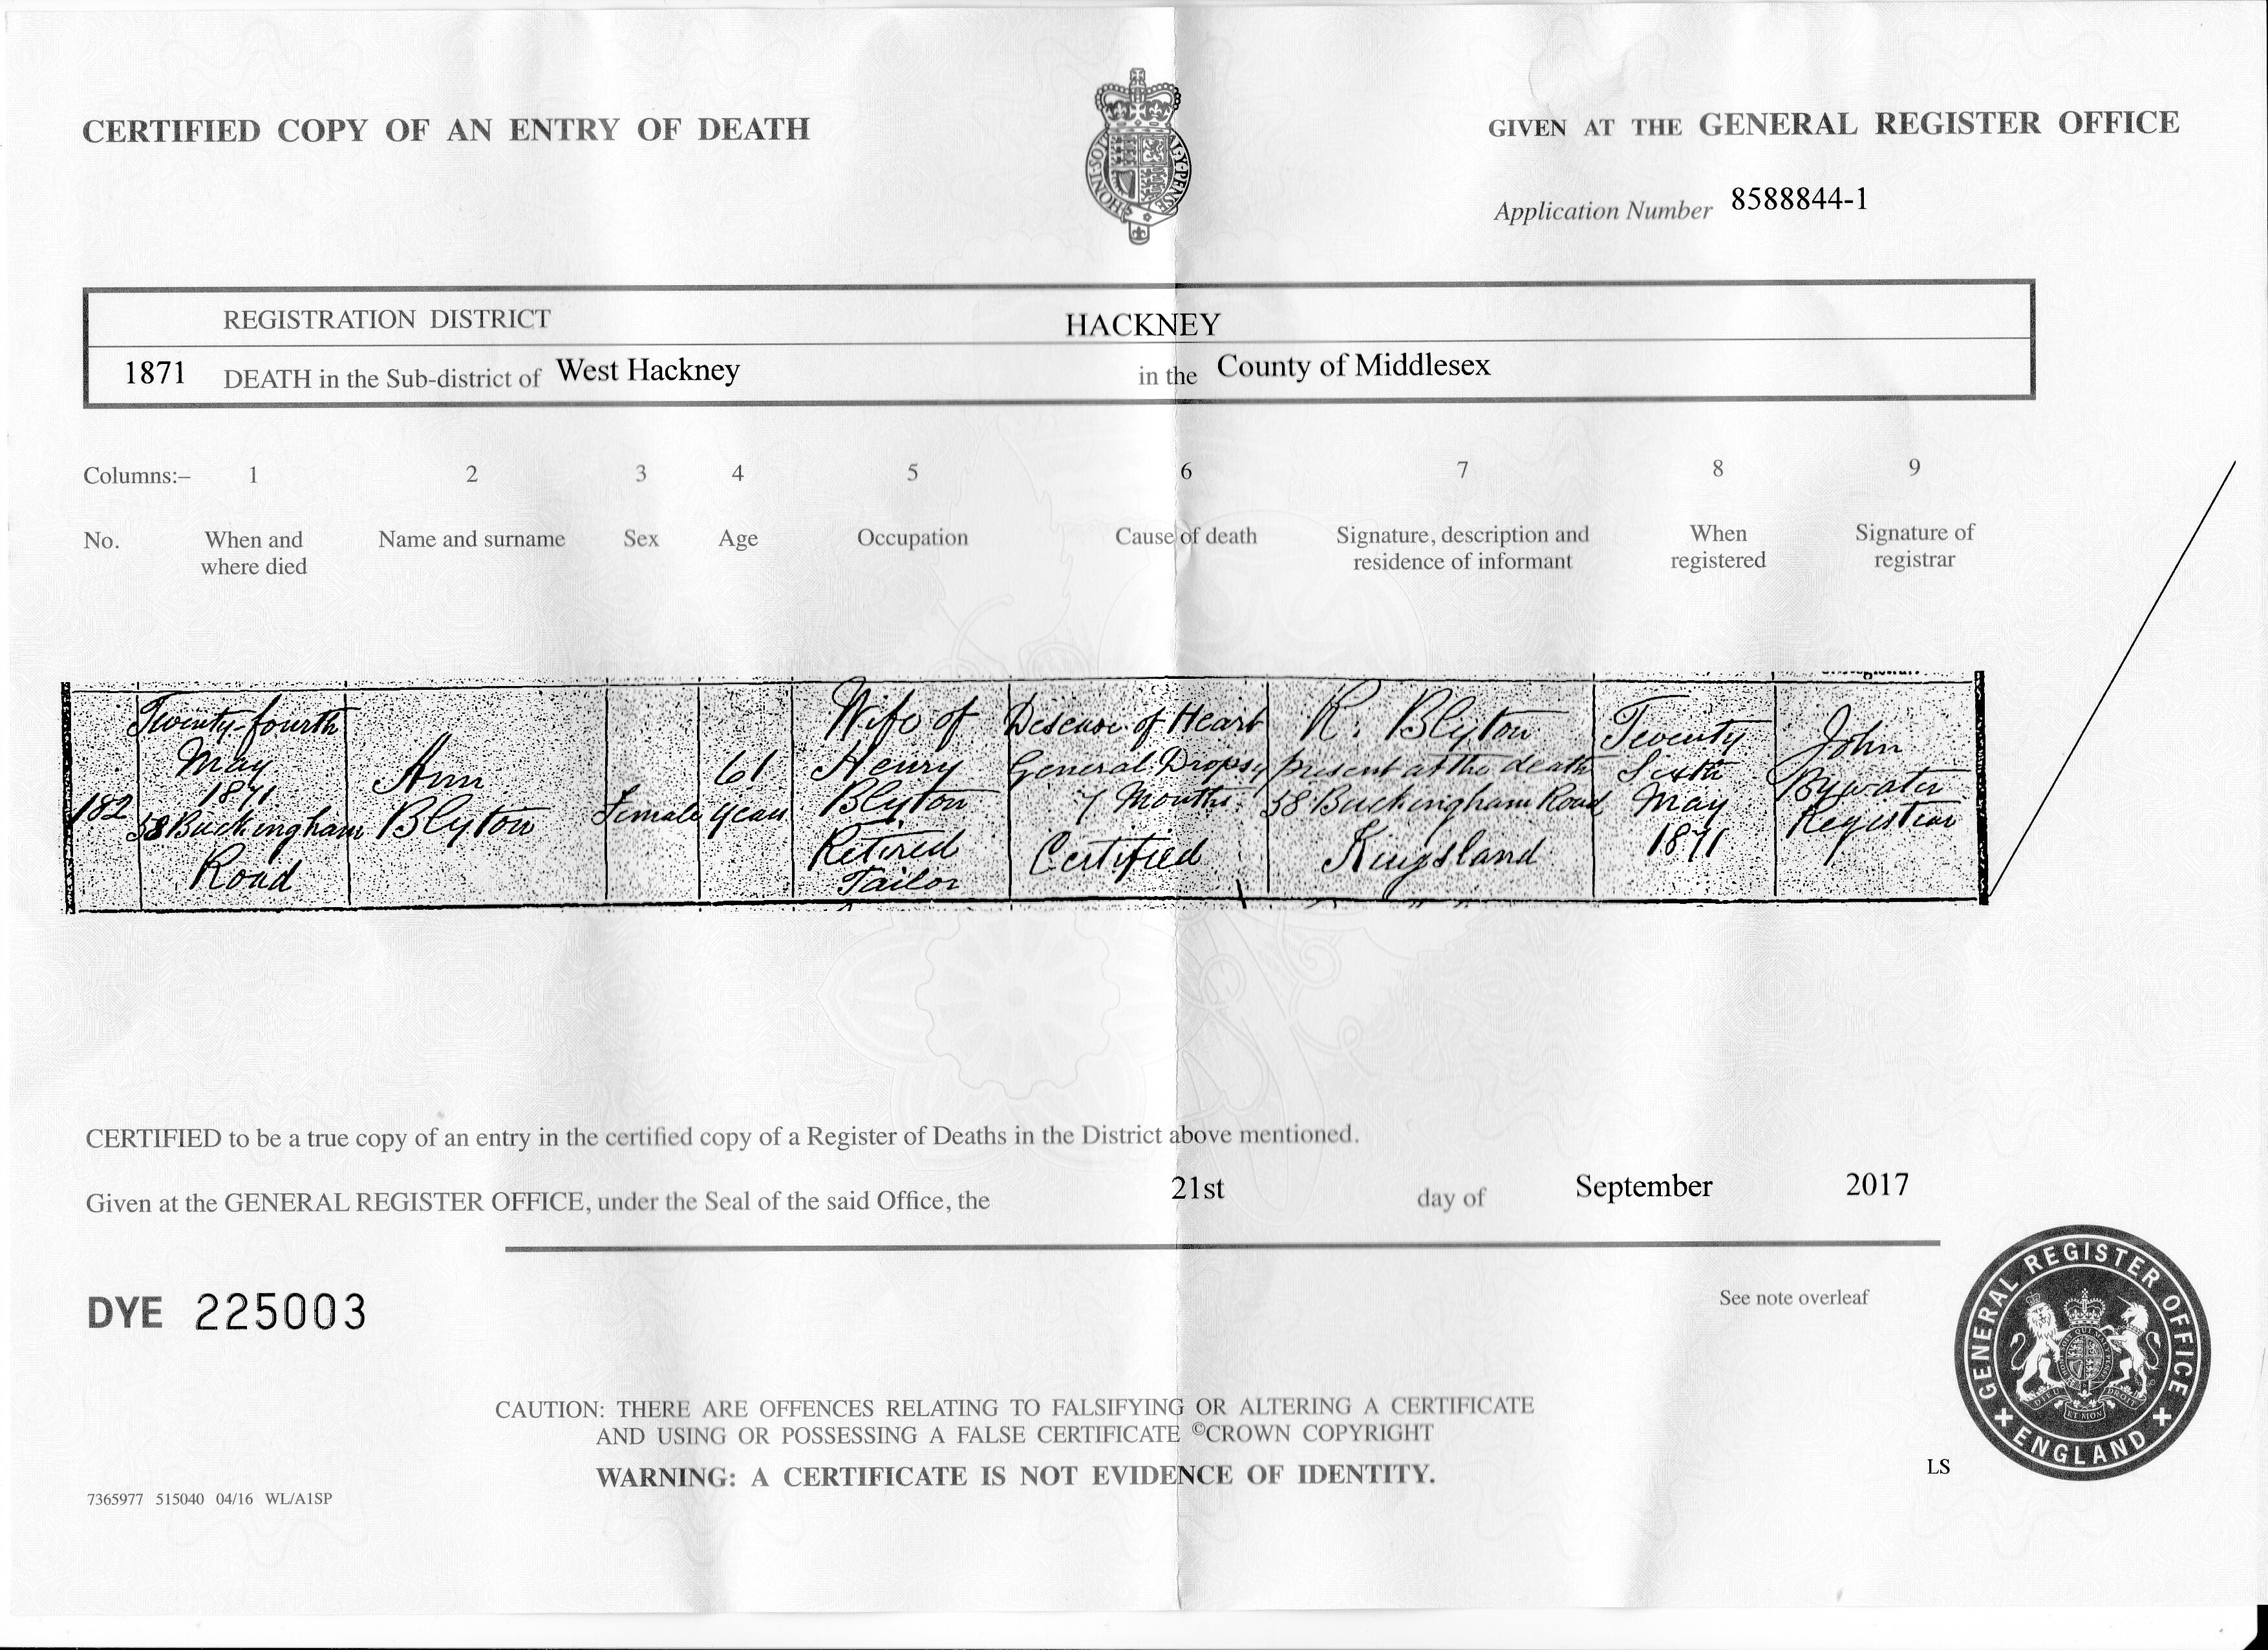 CERTIFIED COPY OF AN ENTRY OF DEATH
GIVEN AT THE GENERAL REGISTER OFFICE
HONI·SOIT
MAL·Y·PENSE
Application Number 8588844-1
REGISTRATION DISTRICT HACKNEY
1871 DEATH in the Sub-district of West Hackney in the County of Middlesex
Columns:– 1 2 3 4 5 6 7 8 9
No.
When and
where died
Name and surname
Sex
Age
Occupation
Cause of death
Signature, description and
residence of informant
When
registered
Signature of
registrar
182
Twenty-fourth
May
1871
58 Buckingham
Road
Ann
Blyton
Female
61
years
Wife of
Henry
Blyton
Retired
Tailor
Disease of Heart
General Dropsy
7 Months
Certified
R. Blyton
present at the death
58 Buckingham Road
Kingsland
Twenty
Sixth
May
1871
John
Bywater
Registrar
CERTIFIED to be a true copy of an entry in the certified copy of a Register of Deaths in the District above mentioned.
Given at the GENERAL REGISTER OFFICE, under the Seal of the said Office, the 21st day of September 2017
DYE 225003
See note overleaf
GENERAL REGISTER OFFICE
ENGLAND
DIEU ET MON DROIT
CAUTION: THERE ARE OFFENCES RELATING TO FALSIFYING OR ALTERING A CERTIFICATE
AND USING OR POSSESSING A FALSE CERTIFICATE ©CROWN COPYRIGHT
WARNING: A CERTIFICATE IS NOT EVIDENCE OF IDENTITY.
LS
7365977 515040 04/16 WL/A1SP